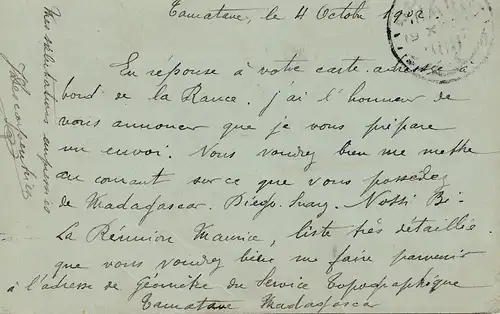 Tamatave, le 4 Octobre 1902
En réponse à votre carte adressée à
bord de la Rance. j'ai l'honneur de
vous annoncer que je vous prépare
un envoi. Nous voudrez bien me mettre
au courant sur ce que vous possedez
de Madagascar. Diego. Suarz. Nossi Bé.
La Réunion Maurice, liste très détaillée
que vous voudrez bien me faire parvenir
à l'adresse de Géomètre du Service Topographique
Tamatave Madagascar
Mes salutations empressées